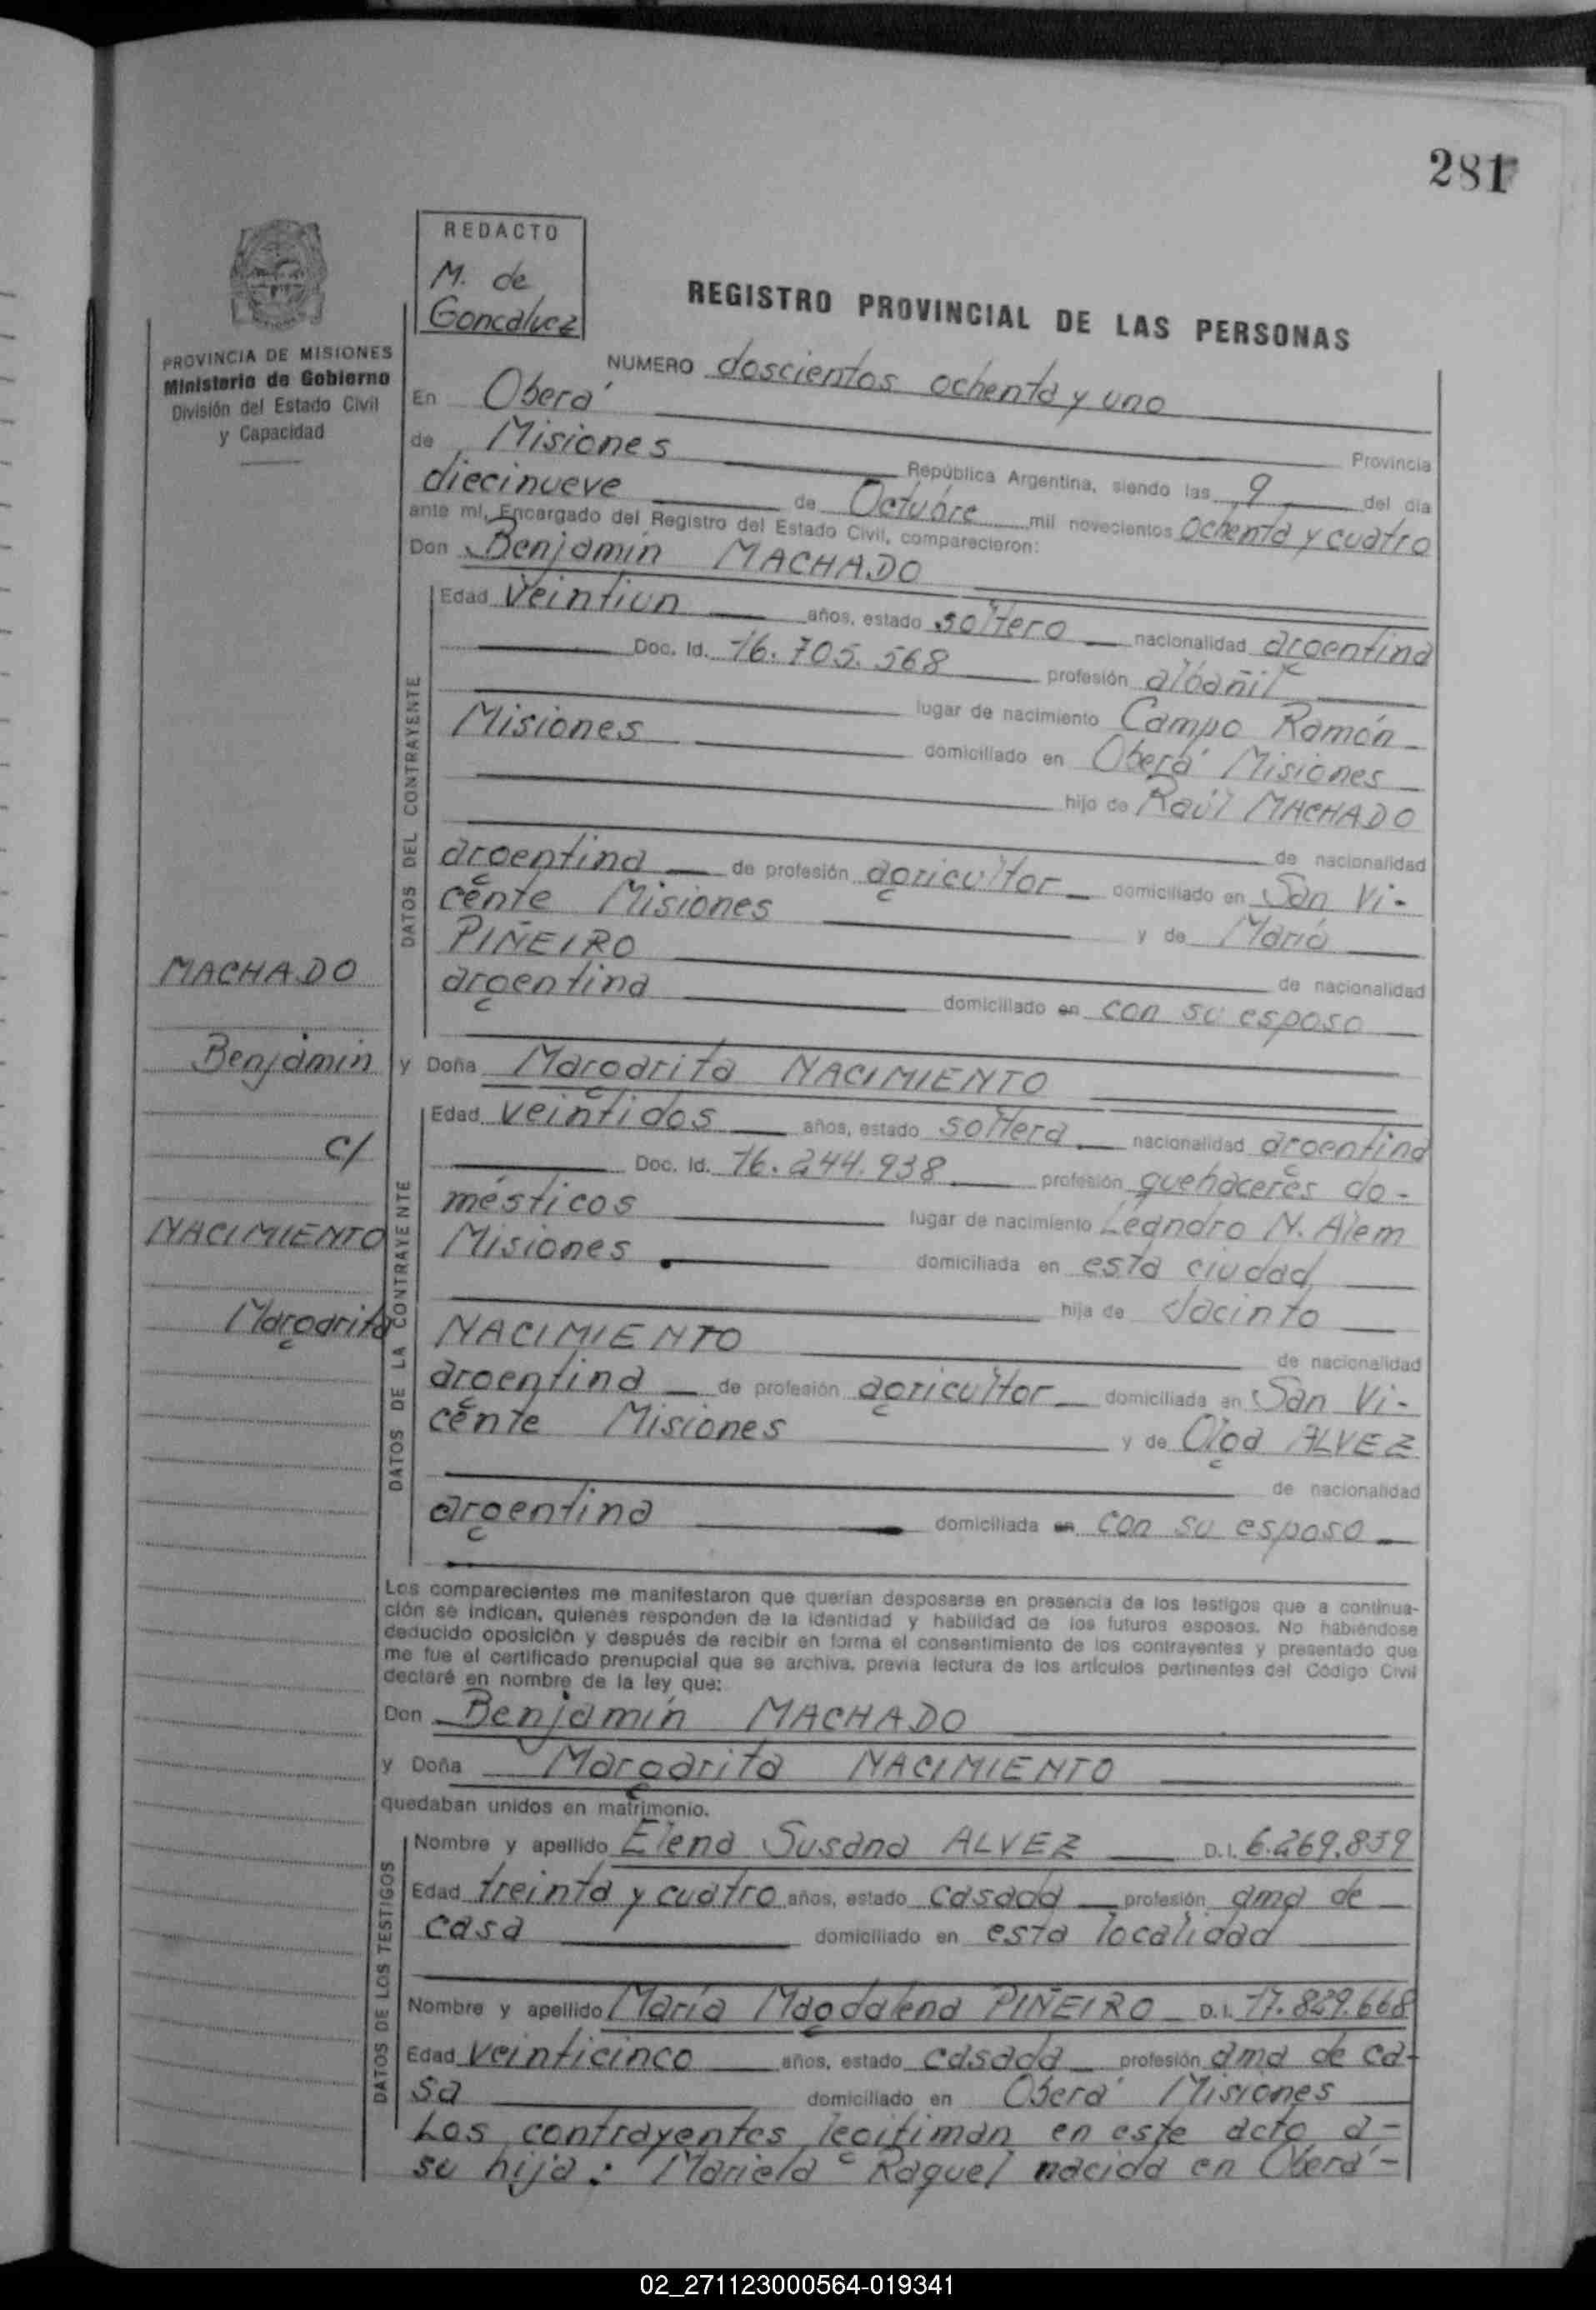 281
REDACTO
M. de
Goncalvez
REGISTRO PROVINCIAL DE LAS PERSONAS
PROVINCIA DE MISIONES
Ministerio de Gobierno
División del Estado Civil
y Capacidad
NUMERO doscientos ochenta y uno
En Oberá Provincia
de Misiones República Argentina, siendo las 9 del día
diecinueve de Octubre mil novecientos ochenta y cuatro
ante mí, Encargado del Registro del Estado Civil, comparecieron:
Don Benjamín MACHADO
DATOS DEL CONTRAYENTE
Edad veintiun años, estado soltero nacionalidad argentina
Doc. Id. 16.705.568 profesión albañil
lugar de nacimiento Campo Ramón
Misiones domiciliado en Oberá Misiones
hijo de Raúl MACHADO
de nacionalidad
argentina de profesión agricultor domiciliado en San Vi-
cente Misiones y de María
PIÑEIRO de nacionalidad
argentina domiciliado en con su esposo
y Doña Margarita NACIMIENTO
MACHADO
Benjamín
c/
NACIMIENTO
Margarita
DATOS DE LA CONTRAYENTE
Edad veintidos años, estado soltera nacionalidad argentina
Doc. Id. 16.244.938 profesión quehaceres do-
mésticos lugar de nacimiento Leandro N. Alem
Misiones domiciliada en esta ciudad
hija de Jacinto
NACIMIENTO de nacionalidad
argentina de profesión agricultor domiciliada en San Vi-
cente Misiones y de Olga ALVEZ
de nacionalidad
argentina domiciliada en con su esposo
Los comparecientes me manifestaron que querían desposarse en presencia de los testigos que a continua-
ción se indican, quienes responden de la identidad y habilidad de los futuros esposos. No habiéndose
deducido oposición y después de recibir en forma el consentimiento de los contrayentes y presentado que
me fue el certificado prenupcial que se archiva, previa lectura de los artículos pertinentes del Código Civil
declaré en nombre de la ley que:
Don Benjamín MACHADO
y Doña Margarita NACIMIENTO
quedaban unidos en matrimonio.
DATOS DE LOS TESTIGOS
Nombre y apellido Elena Susana ALVEZ D.I. 6.269.839
Edad treinta y cuatro años, estado casada profesión ama de
casa domiciliado en esta localidad
Nombre y apellido María Magdalena PIÑEIRO D.I. 17.829.668
Edad veinticinco años, estado casada profesión ama de ca-
sa domiciliado en Oberá Misiones
Los contrayentes legitiman en este acto a-
su hija: Mariela Raquel nacida en Oberá-
02_271123000564-019341